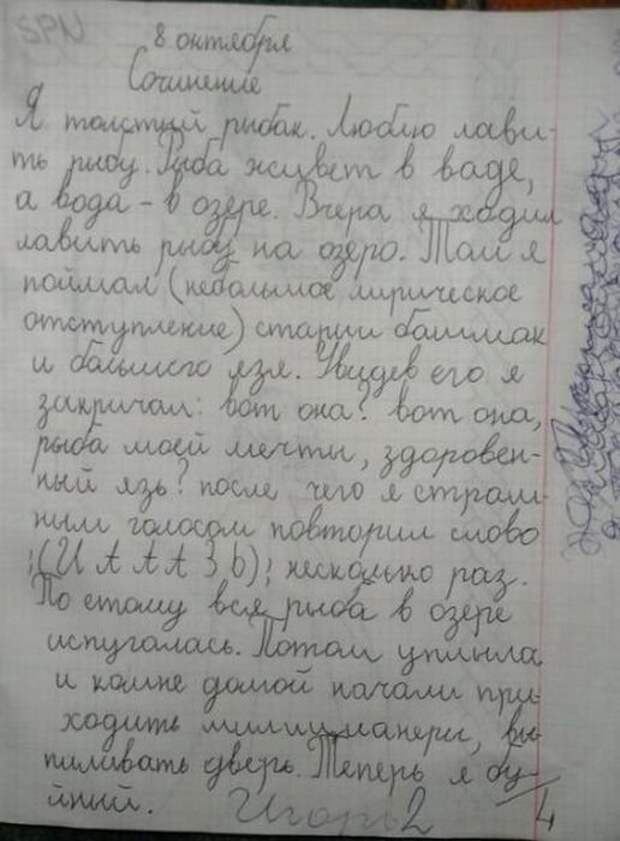 SPN
8 октября
Сочинение
Я толстый рыбак. Люблю лави-
ть рыбу. Рыба живет в ваде,
а вода - в озере. Вчера я хадил
лавить рыбу на озеро. Там я
поймал (небольшое лирическое
отступление) старии башмак
и большого язя. Увидев его я
закричал: вот она? вот она,
рыба моей мечты, здоровен-
ный язь? после чего я страш-
ным голосом повторил слово
¡(И А А А З Ь)¡ несколько раз.
По етому вся рыба в озере
испугалась. Потом уплыла
и комне домой начали при-
ходить милиционеры, вы-
пиливать дверь. Теперь я бу-
йний.
Игорь 2/4